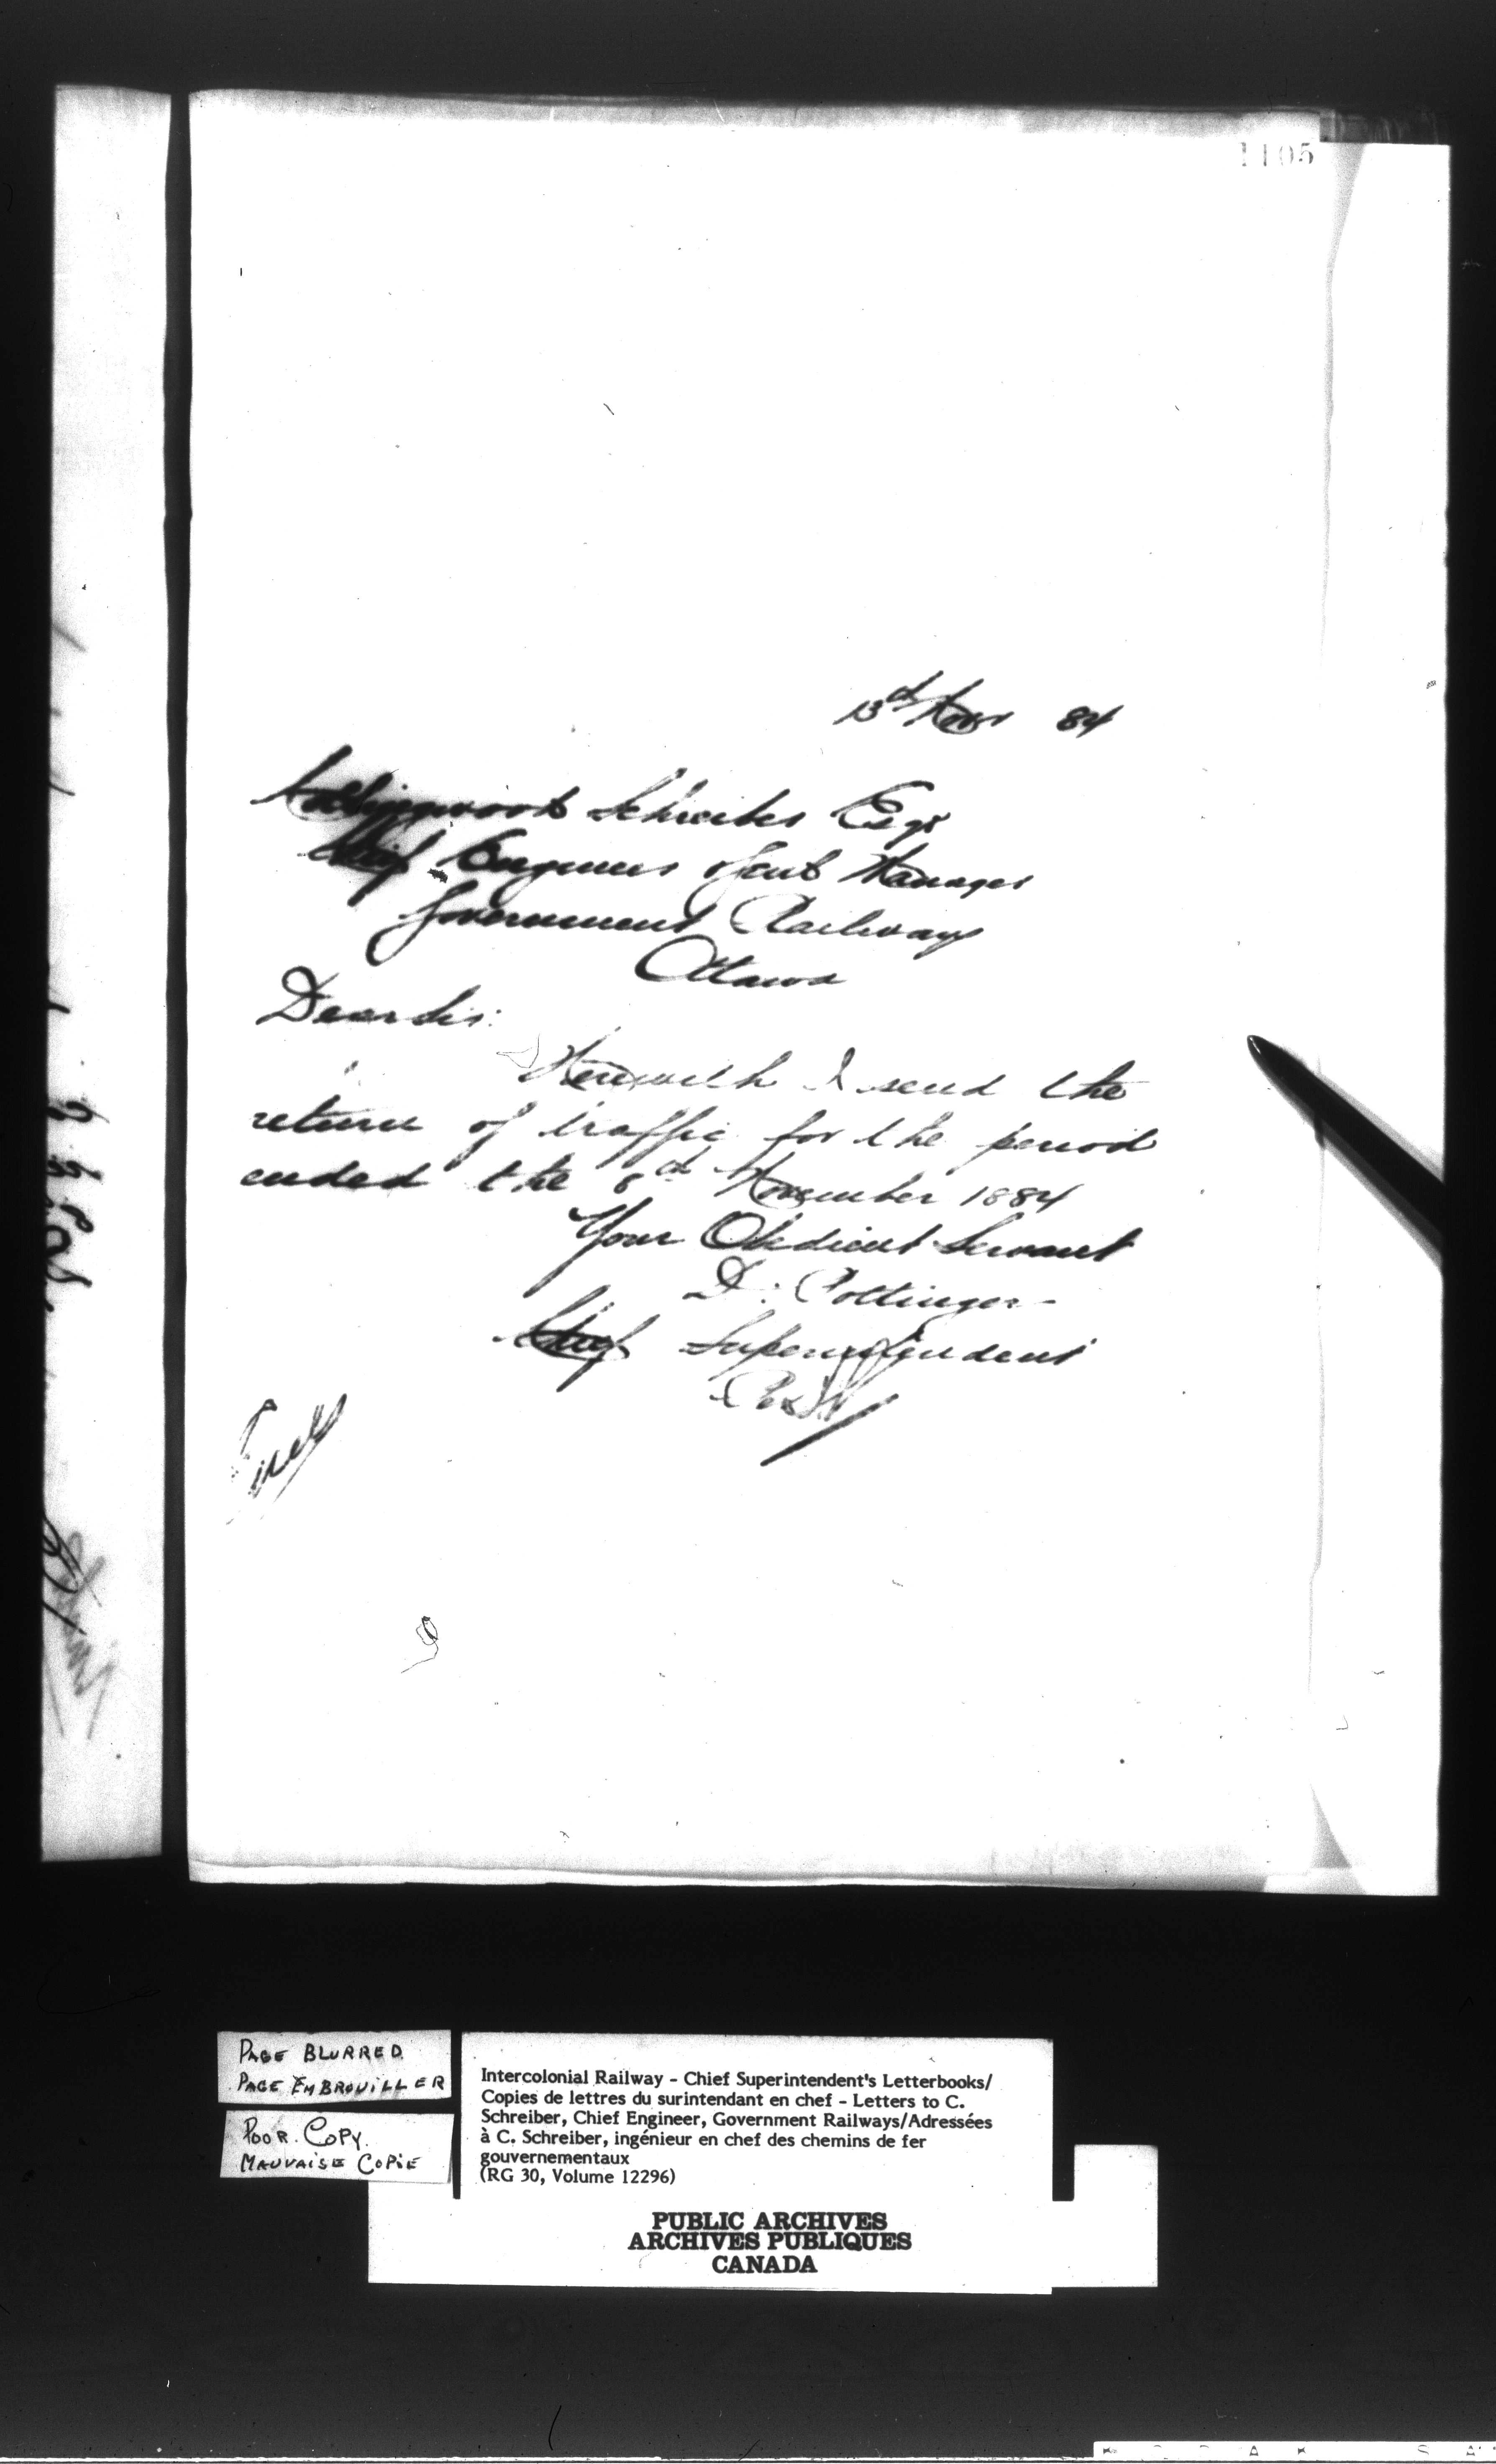 1105
13th Novr 84
Collingwood Schreiber Esqr
Chief Engineer & Genl Manager
Government Railways
Ottawa
Dear Sir:
Herewith I send the
return of traffic for the period
ended the 8th November 1884
Your Obedient Servant
D. Pottinger
Chief Superintendent
PAGE BLURRED
PAGE EMBROUILLER
POOR COPY.
MAUVAISE COPIE
Intercolonial Railway - Chief Superintendent's Letterbooks/
Copies de lettres du surintendant en chef - Letters to C.
Schreiber, Chief Engineer, Government Railways/Adressées
à C. Schreiber, ingénieur en chef des chemins de fer
gouvernementaux
(RG 30, Volume 12296)
PUBLIC ARCHIVES
ARCHIVES PUBLIQUES
CANADA